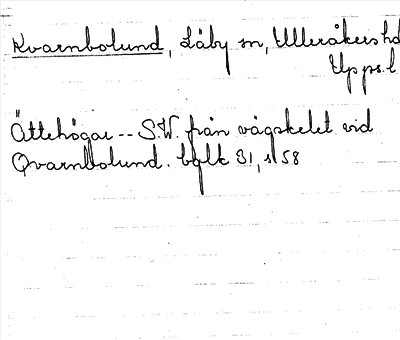 Kvarnbolund, Läby sn, Ulleråkers hd
Upps. l
Ättehögar -- S.W. från vägskelet vid
Qvarnbolund. bylk 31, s 58